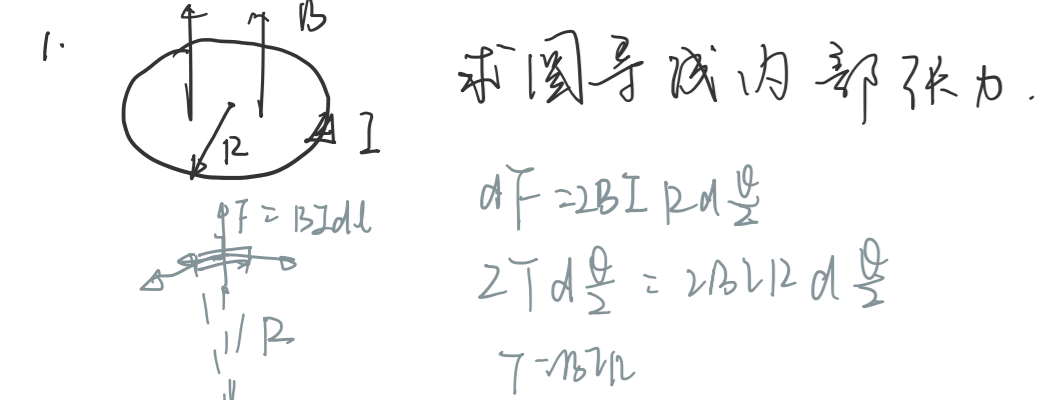 1.
B
R
I
求圆导线内部张力.
F = BIdl
R
dF = 2BIRd θ/2
2Td θ/2 = 2BIRd θ/2
T = BIR